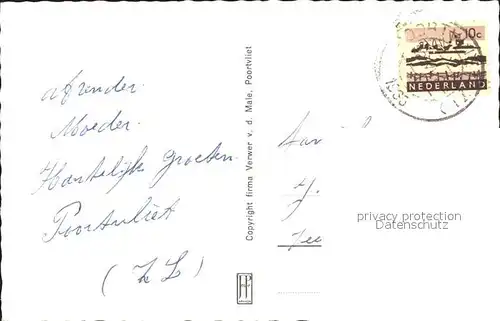 afzender
Moeder.
Hartelijke groeten
Poortvliet
(Z L)
Copyright firma Verwer v. d. Male, Poortvliet
10c
NEDERLAND
Aan
privacy protection
Datenschutz